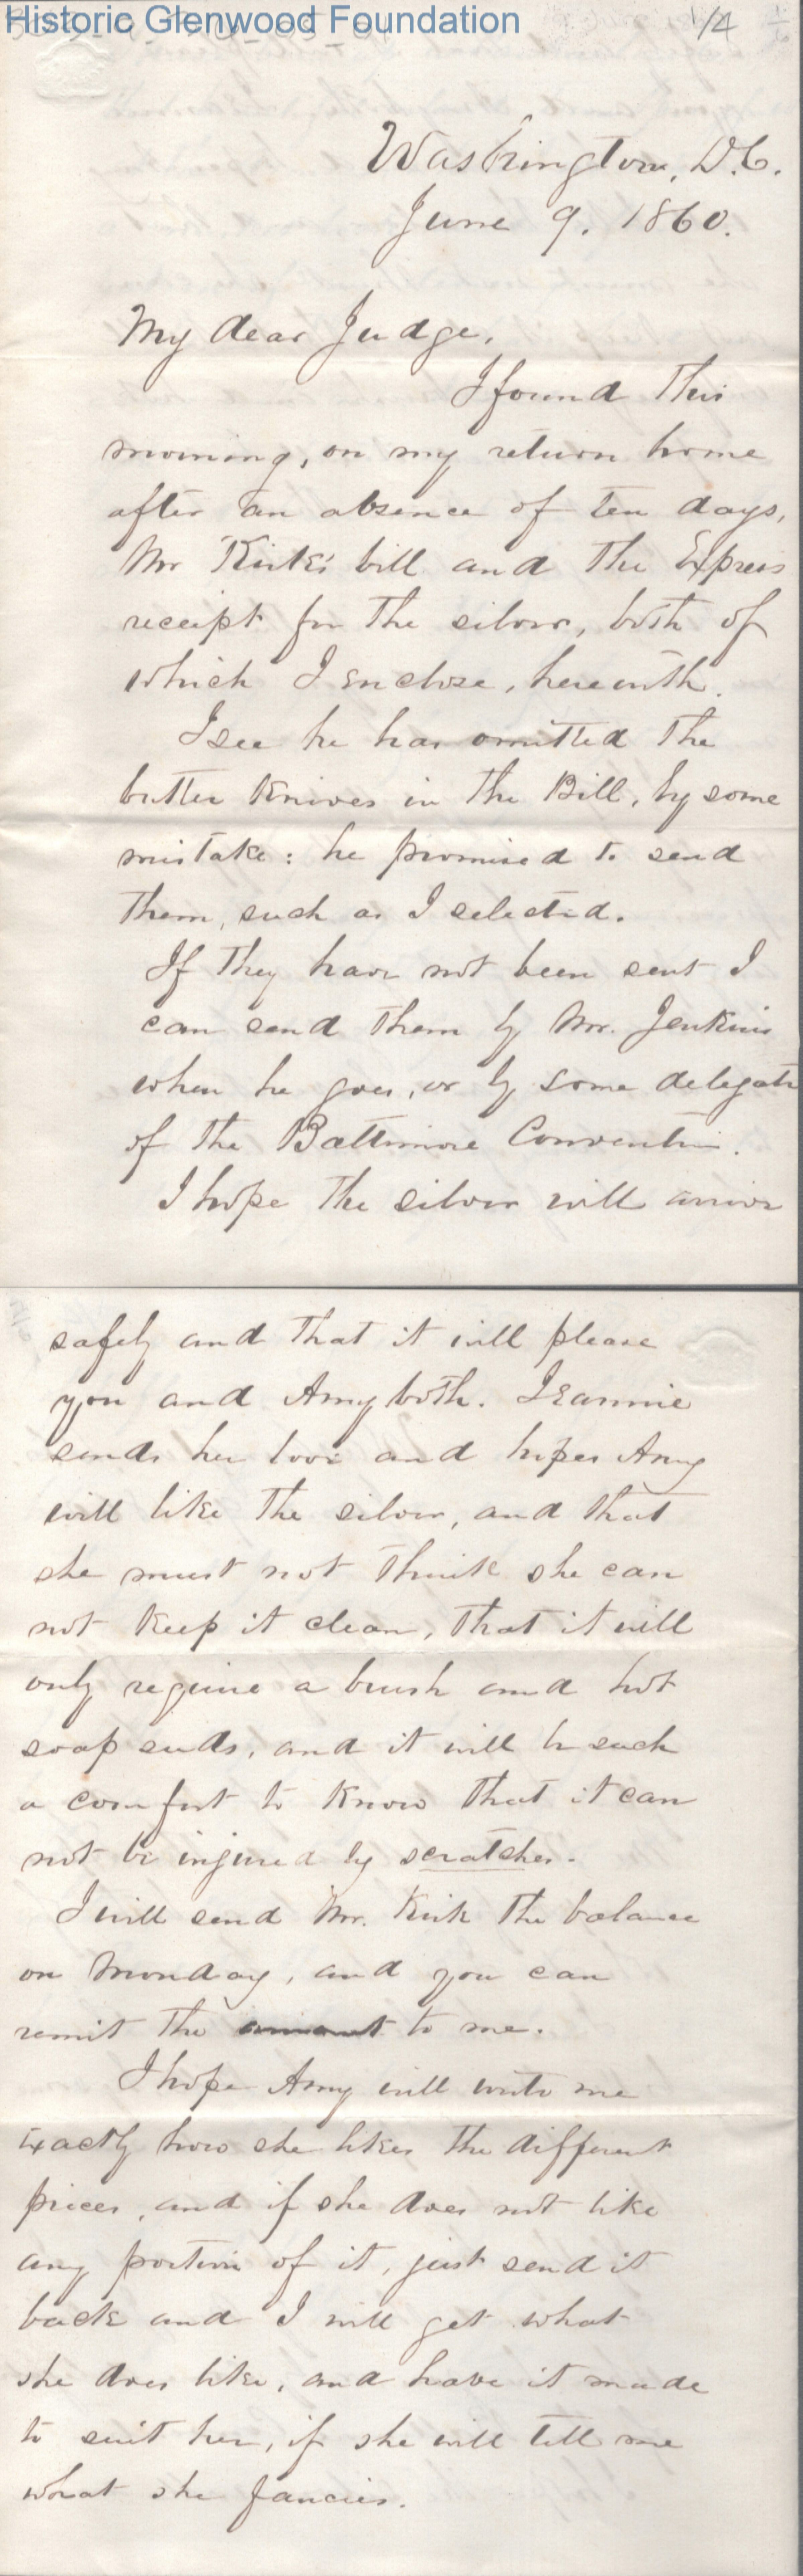 Historic Glenwood Foundation
1/4
Washington, D.C.
June 9. 1860.
My dear Judge,
I found this
morning, on my return home
after an absence of ten days,
Mr Kirk's bill and the Express
receipt for the silver, both of
which I enclose, herewith.
I see he has omitted the
butter knives in the Bill, by some
mistake: he promised to send
them, such as I selected.
If they have not been sent I
can send them by Mr. Jenkins
when he goes, or by some delegate
of the Baltimore Convention.
I hope the silver will arrive
safely and that it will please
you and Amy both. Jeannie
sends her love and hopes Amy
will like the silver, and that
she must not think she can
not keep it clean, that it will
only require a brush and hot
soap suds, and it will be such
a comfort to know that it can
not be injured by scratches.
I will send Mr. Kirk the balance
on Monday, and you can
remit the amount to me.
I hope Amy will write me
exactly how she likes the different
pieces, and if she does not like
any portion of it, just send it
back and I will get what
she does like, and have it made
to suit her, if she will tell me
what she fancies.